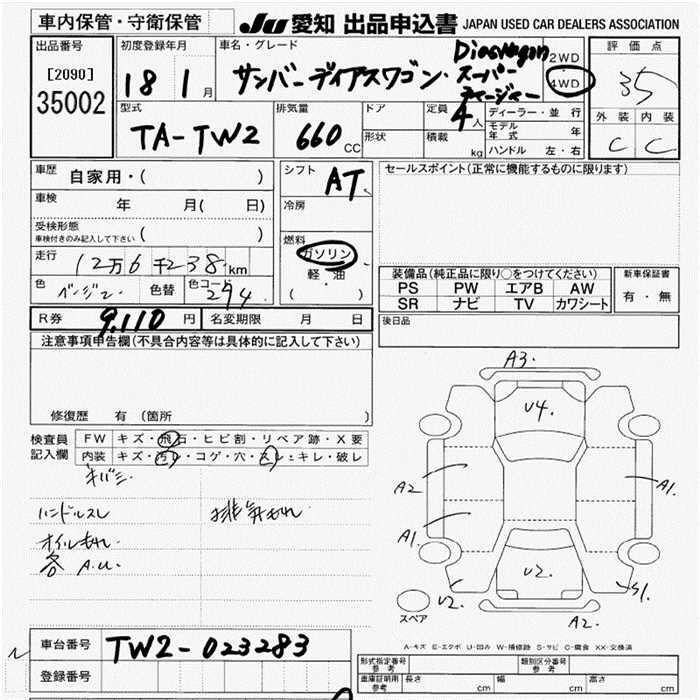 車内保管・守衛保管
JU 愛知 出品申込書 JAPAN USED CAR DEALERS ASSOCIATION
出品番号
[2090]
35002
初度登録年月
18 1 月
車名・グレード
サンバーディアスワゴン・スーパー
Dias Wagon
2WD
・
4WD
評価点
35
外装 内装
C C
型式
TA-TW2
排気量
660 CC
ドア
形状
定員
4人
積載
kg
ディーラー・並行
モデル年式 年
ハンドル 左・右
車歴
自家用・( )
車検
年 月( 日)
受検形態
車検付きのみ記入して下さい ( )
走行
12万6千238 km
色
ベージュ
色替
色コード
294
シフト
AT
冷房
燃料
ガソリン
・
軽・油
( )
セールスポイント(正常に機能するものに限ります)
装備品(純正品に限り○をつけてください)
PS PW エアB AW
SR ナビ TV カワシート
新車保証書
有・無
R券
9,110 円
名変期限 月 日
後日品
注意事項申告欄(不具合内容等は具体的に記入して下さい)
修復歴 有(箇所 )
検査員
記入欄
FW キズ・飛石・ヒビ割・リペア跡・X要
内装 キズ・汚レ・コゲ・穴・スレ・キレ・破レ
キバミ
ハンドルスレ
排気もれ
オイルもれ
各 A.U.
A3.
U4.
A2
A1.
A1.
A1.
U2.
U2.
S1.
A2.
スペア
A-キズ E-エクボ U-凹み W-補修跡 S-サビ C-腐食 XX-交換済
車台番号
TW2-023283
登録番号
型式指定番号
参考
類別区分番号
参考
車庫証明用
参考
長さ cm
幅 cm
高さ cm